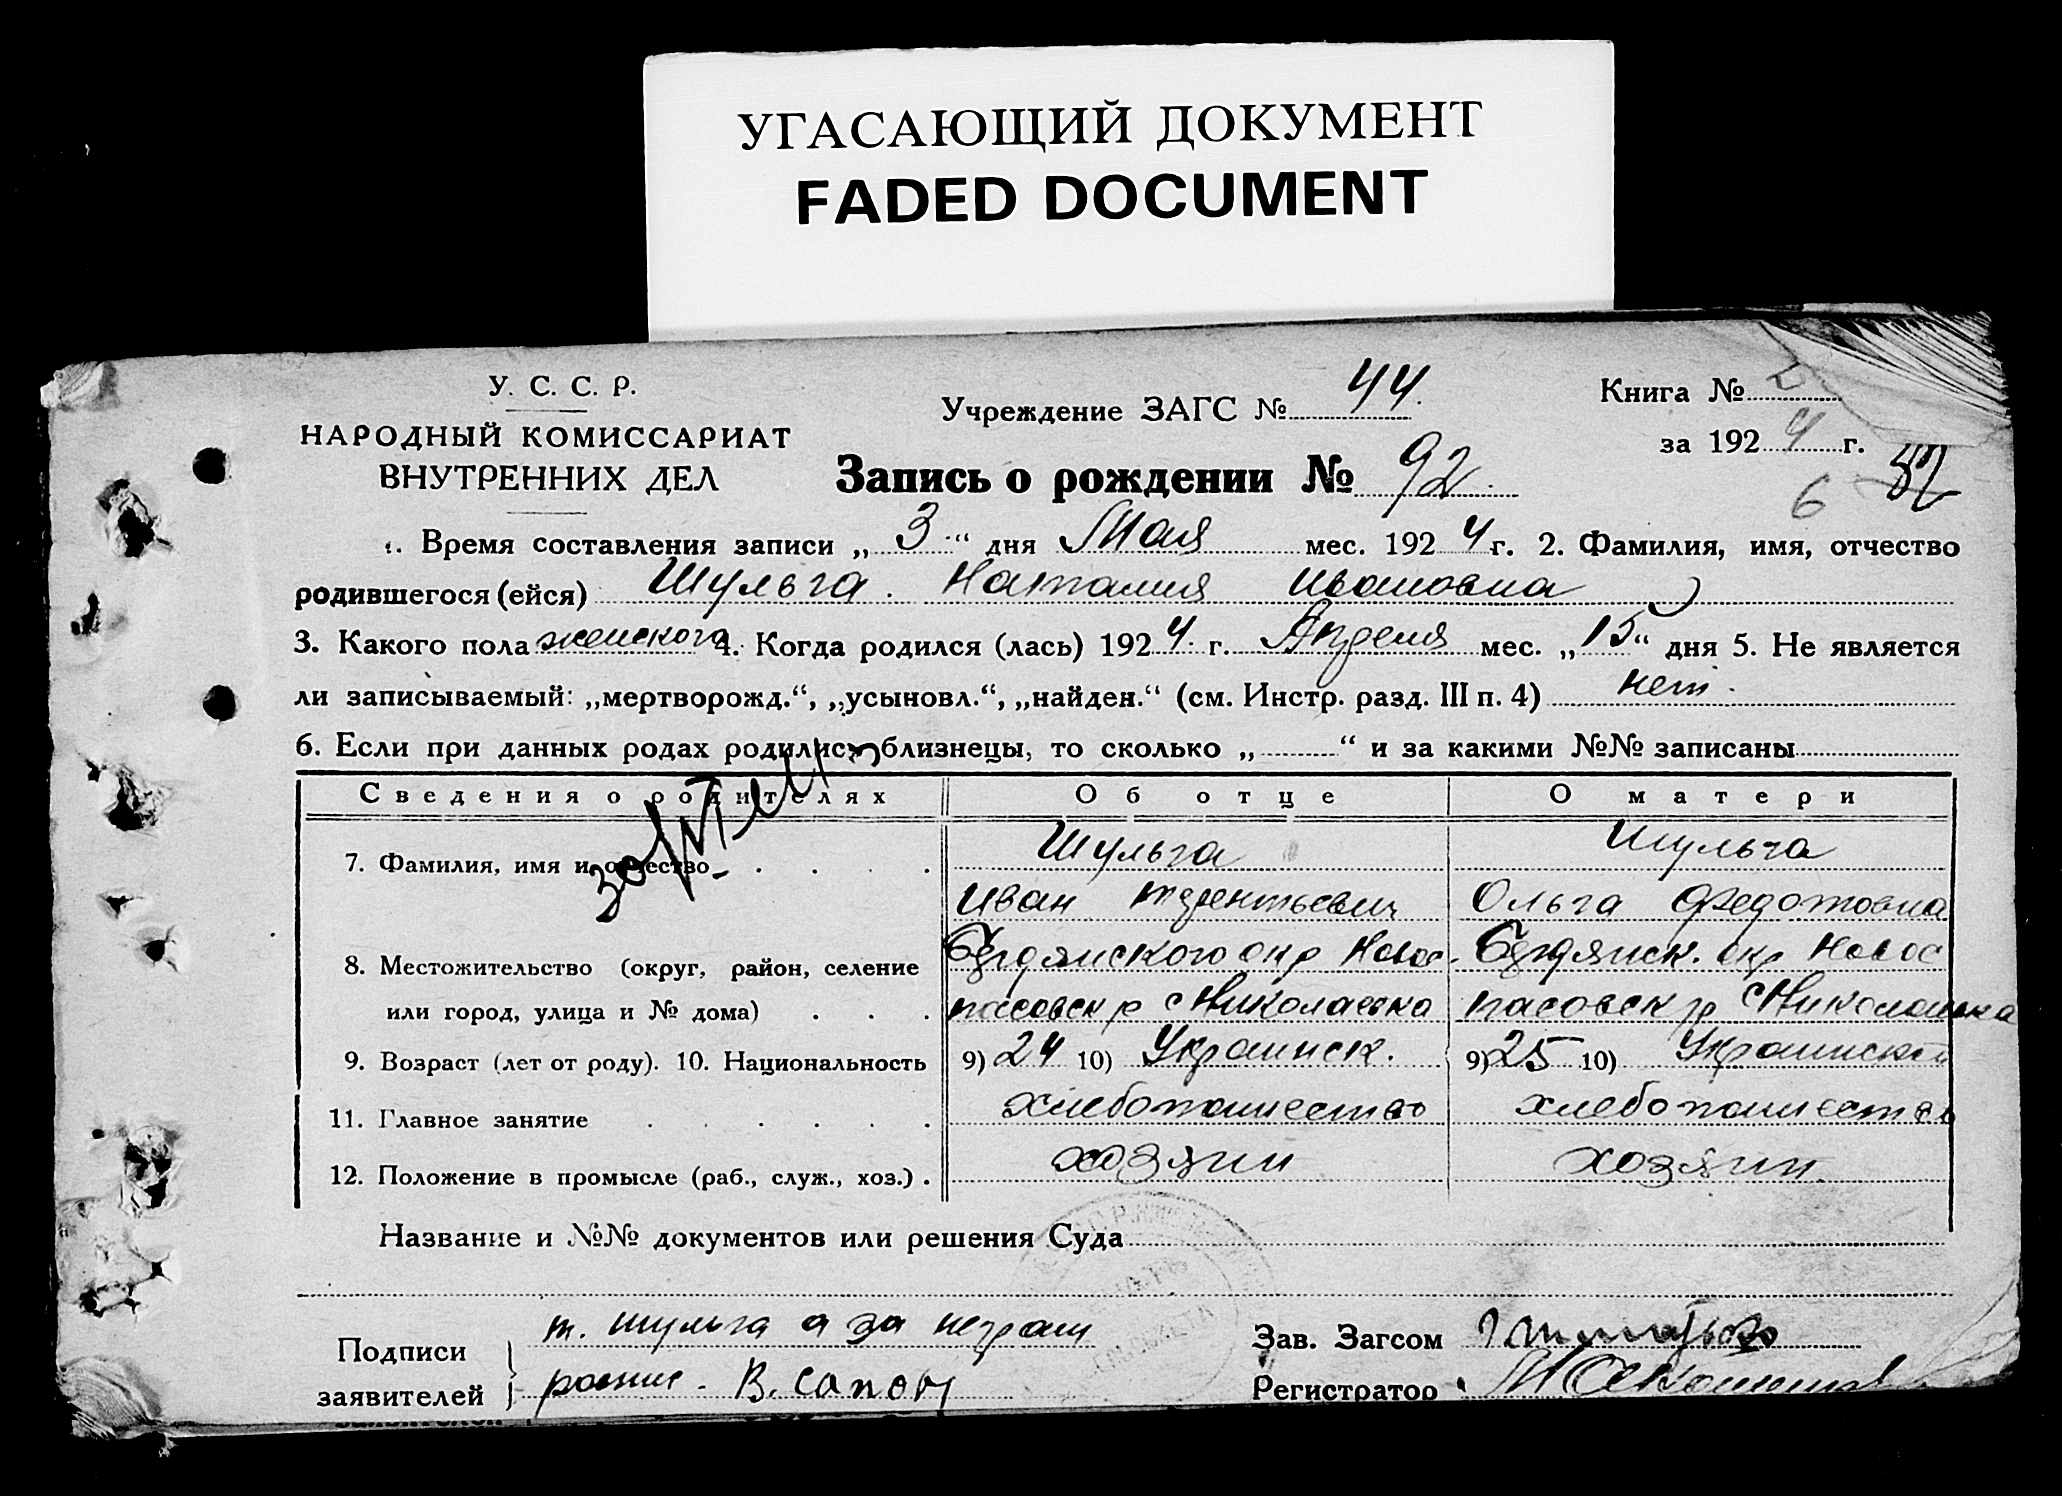 УГАСАЮЩИЙ ДОКУМЕНТ
FADED DOCUMENT
У. С. С. Р.
НАРОДНЫЙ КОМИССАРИАТ
ВНУТРЕННИХ ДЕЛ
Учреждение ЗАГС № 44.
Книга №
за 1924 г.
Запись о рождении № 92.
6 82
1. Время составления записи „3“ дня Мая мес. 1924 г. 2. Фамилия, имя, отчество
родившегося (ейся) Шульга. Наталия Ивановна
3. Какого пола женского 4. Когда родился (лась) 1924 г. Апреля мес. „15“ дня 5. Не является
ли записываемый: „мертворожд.“, „усыновл.“, „найден.“ (см. Инстр. разд. III п. 4) нет.
6. Если при данных родах родились близнецы, то сколько „ “ и за какими №№ записаны
Сведения о родителях Об отце О матери
7. Фамилия, имя и отчество Шульга Шульга
Иван Терентьевич Ольга Федотовна
8. Местожительство (округ, район, селение Бердянского окр Новос- Бердянск. окр Новос
или город, улица и № дома) пасовск р с Николаевка пасовск р с Николаевка
9. Возраст (лет от роду). 10. Национальность 9) 24 10) Украинск. 9) 25 10) Украинск
11. Главное занятие хлебопашество хлебопашество
12. Положение в промысле (раб., служ., хоз.) хозяин хозяин
Название и №№ документов или решения Суда
Подписи
заявителей
т. Шульга а за неграм
В. Сапон
Зав. Загсом
Регистратор